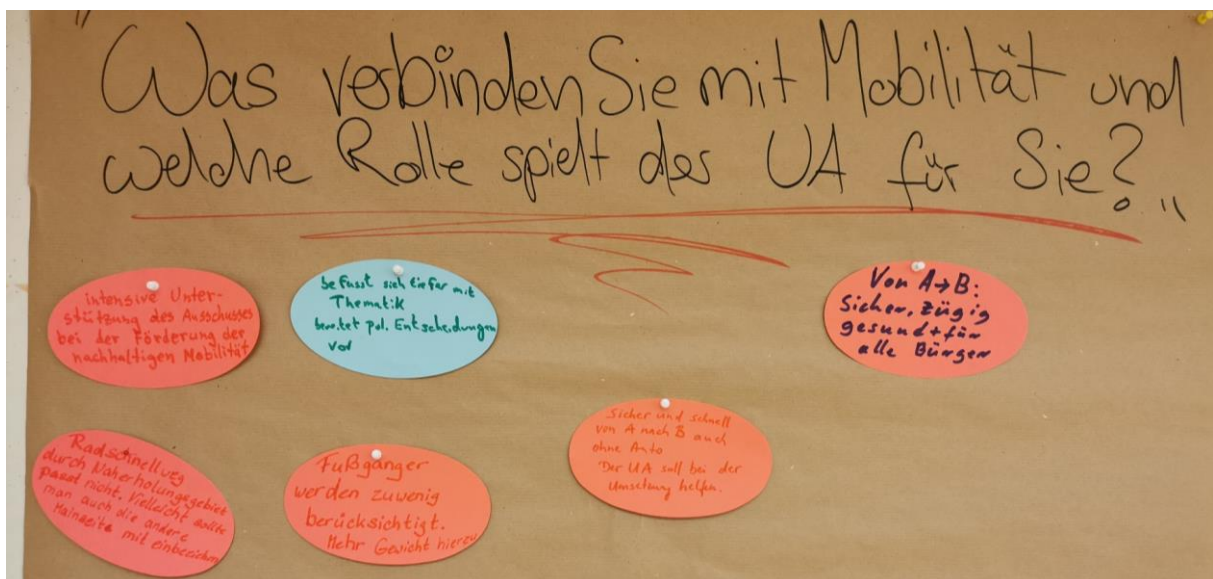 „Was verbinden Sie mit Mobilität und
welche Rolle spielt der UA für Sie?"
intensive Unter-
stützung des Ausschusses
bei der Förderung der
nachhaltigen Mobilität
befasst sich tiefer mit
Thematik
bereitet pol. Entscheidungen
vor
Von A→B:
Sicher, zügig
gesund + für
alle Bürger
Radschnellweg
durch Naherholungsgebiet
passt nicht. Vielleicht sollte
man auch die andere
Mainseite mit einbeziehen
Fußgänger
werden zuwenig
berücksichtigt.
Mehr Gewicht hierzu
Sicher und schnell
von A nach B auch
ohne Auto
Der UA soll bei der
Umsetzung helfen.